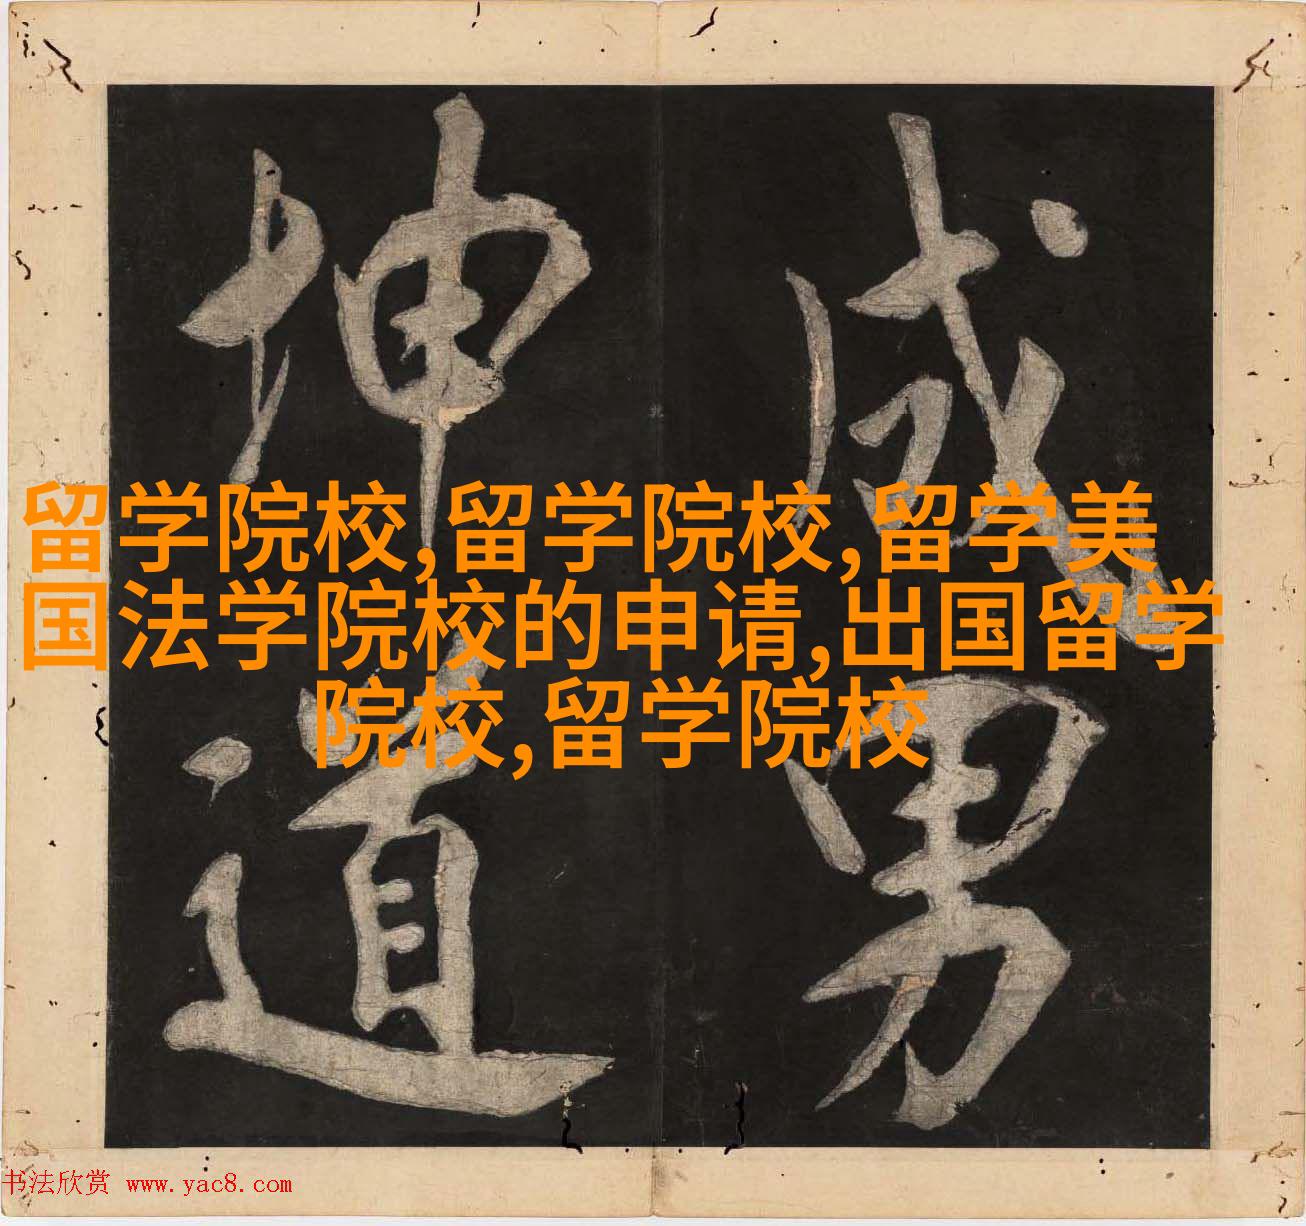 成男
坤道
留学院校,留学院校,留学美
国法学院校的申请,出国留学
院校,留学院校
书法欣赏 www.yac8.com